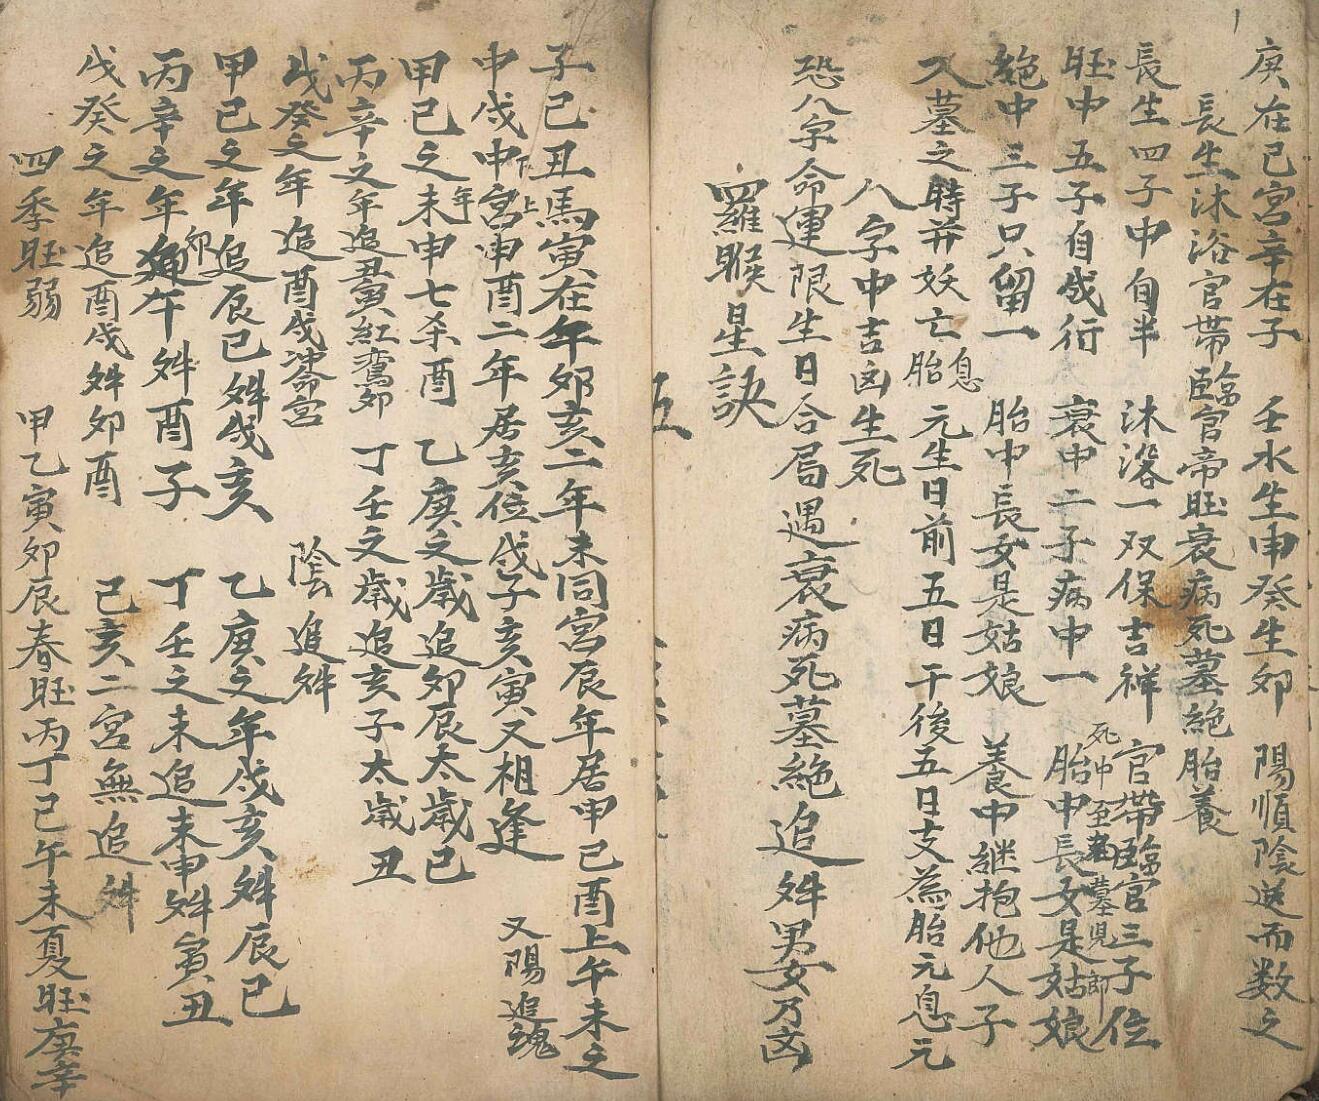 庚在巳宮辛在子 壬水生申癸生卯 陽順陰逆而数之
長生沐浴官帯臨官帝旺衰病死墓絶胎養
長生四子中旬半 沐浴一双保吉祥 官帶臨官三子位
旺中五子自成行 衰中二子病中一 死中至老墓児郎 胎中長女是姑娘
絶中三子只留一 胎中長女是姑娘 養中継抱他人子
入墓之時并妖亡 胎息 元生日前五日干後五日支為胎元息元
八字中吉凶生死
恐八字命運限生日合局遇衰病死墓絶追 男女乃凶
羅睺星訣
五
子已丑馬寅在年卯亥二年未同宮辰年居申巳酉上午未之
中戌中下宮上申酉二年居亥位戌子亥寅又相逢 又陽追魂
甲己之年未申七杀酉 乙庚之歲追卯辰太歲巳
丙辛之年追丑寅紅鸞卯 丁壬之歲追亥子太歲丑
戊癸之年追酉戌冲命宮 陰追
甲己之年追辰巳 戌亥 乙庚之年戌亥 辰巳
丙辛之年卯午 酉子 丁壬之未追未申 寅丑
戊癸之年追酉戌 卯酉 己亥二宮無追
四季旺弱 甲乙寅卯辰春旺丙丁巳午未夏旺庚辛